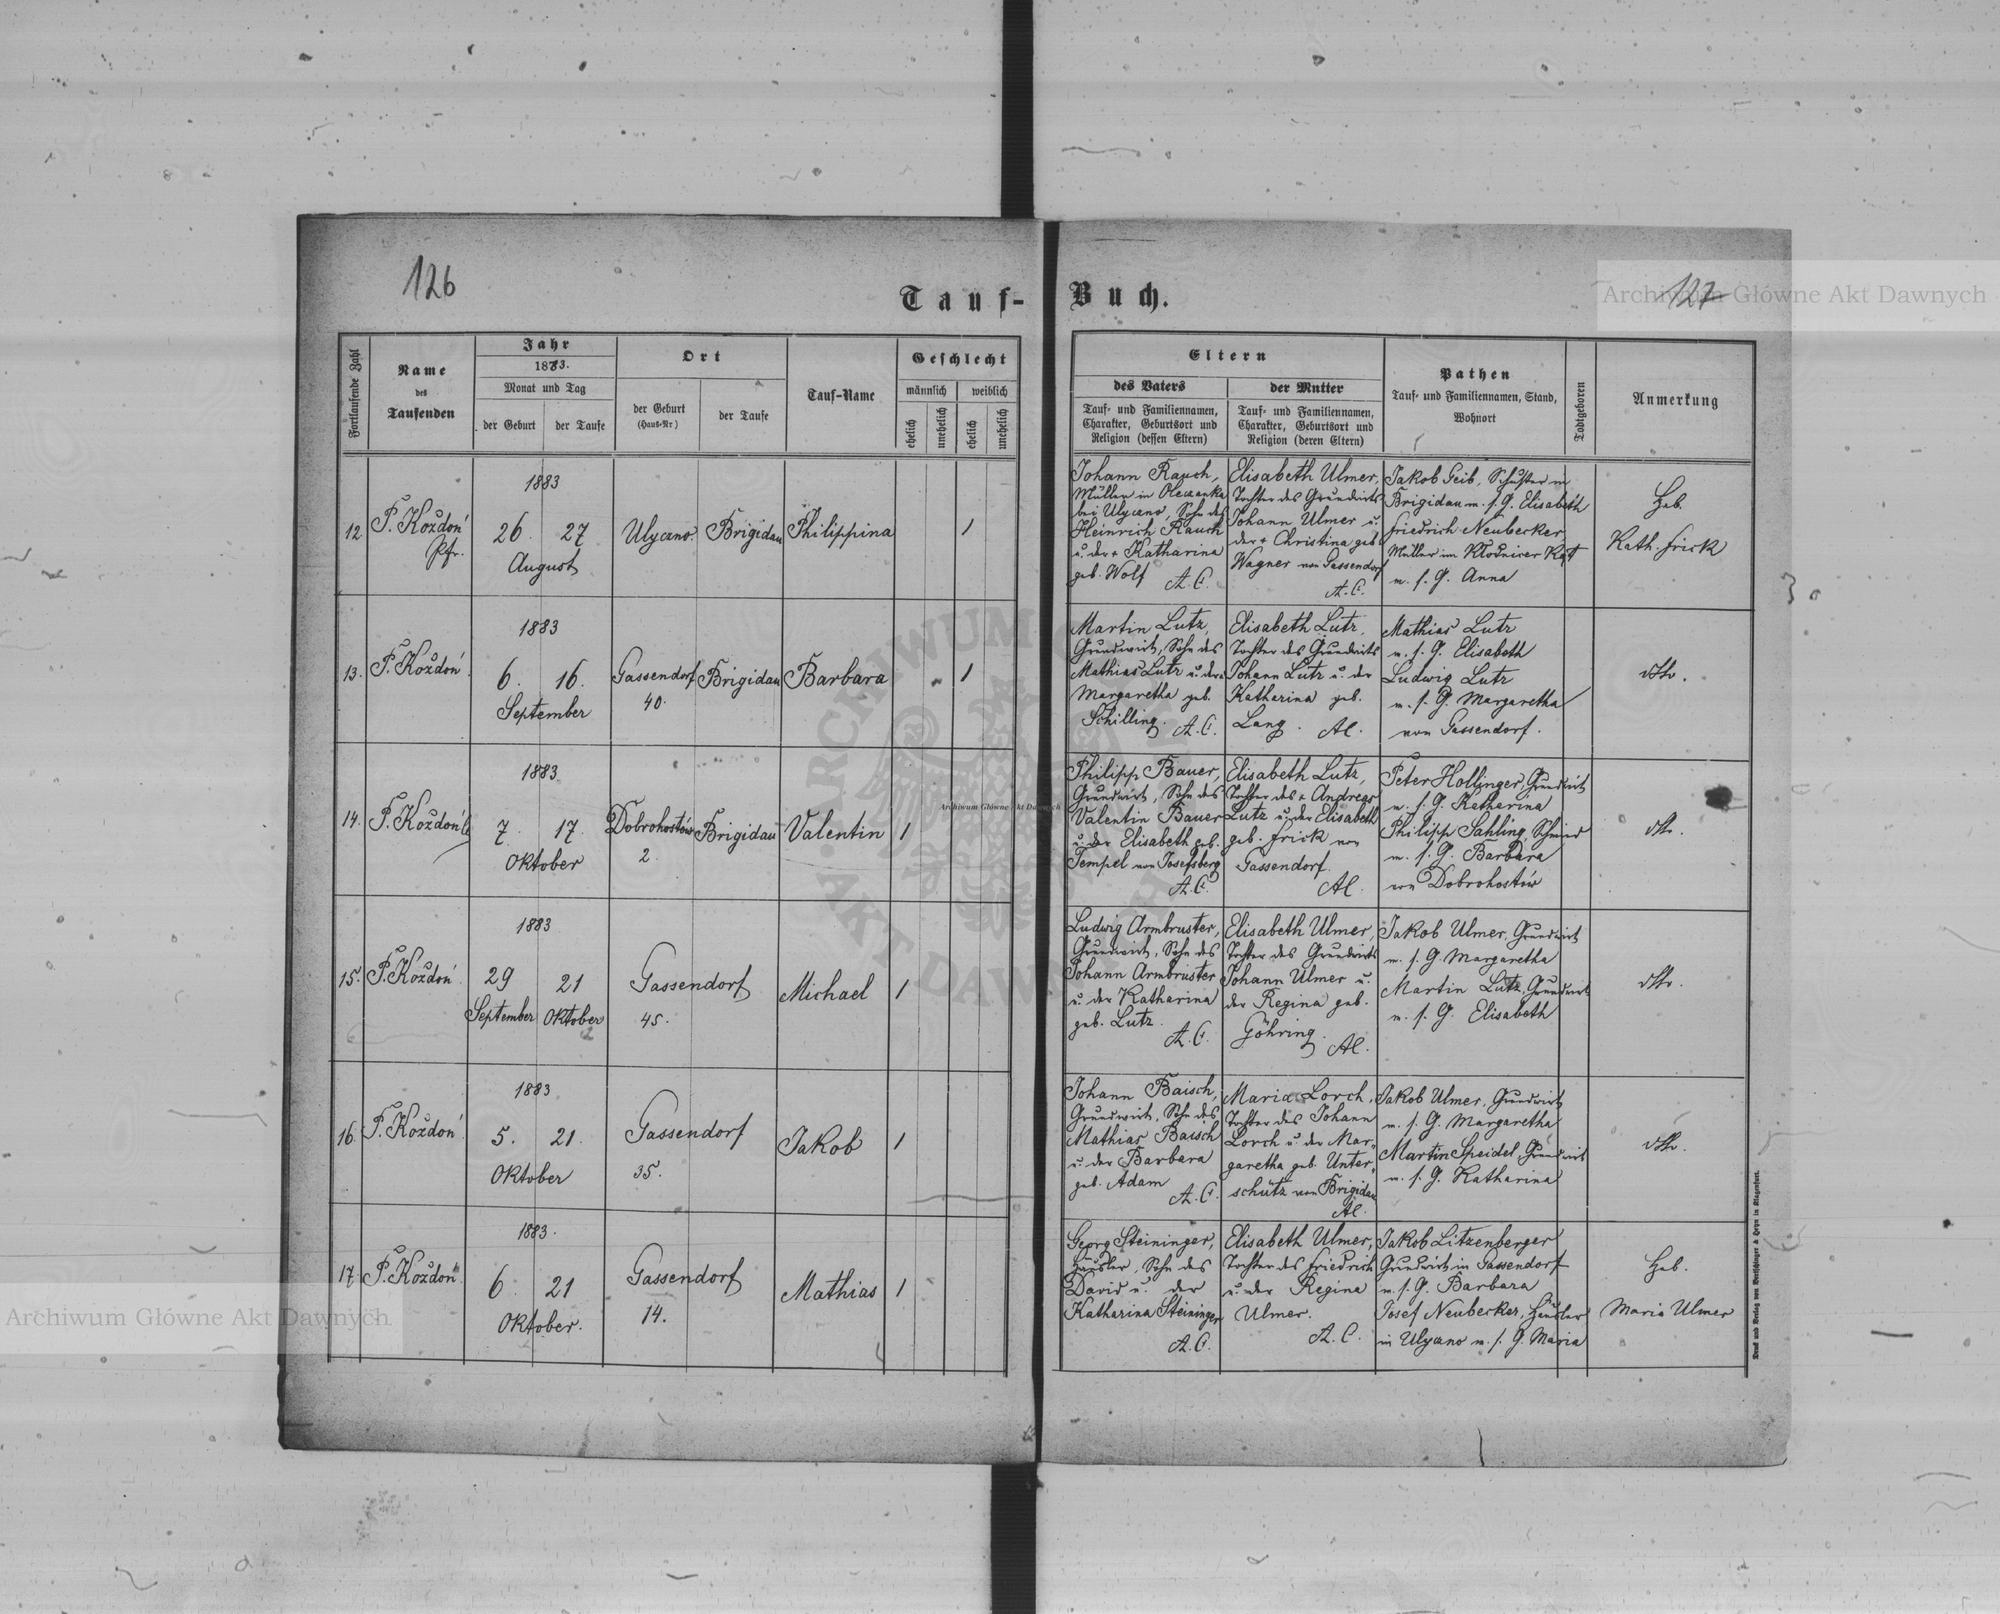 126
127
Tauf-Buch.
Archiwum Główne Akt Dawnych
Fortlaufende Zahl
Name
des
Taufenden
Jahr
1883.
Monat und Tag
der Geburt
der Taufe
Ort
der Geburt
(Haus-Nr)
der Taufe
Tauf-Name
Geschlecht
männlich
weiblich
ehelich
unehelich
ehelich
unehelich
Eltern
des Vaters
Tauf- und Familiennamen,
Charakter, Geburtsort und
Religion (dessen Eltern)
der Mutter
Tauf- und Familiennamen,
Charakter, Geburtsort und
Religion (deren Eltern)
Pathen
Tauf- und Familiennamen, Stand,
Wohnort
Todtgeboren
Anmerkung
12.
P. Kożdoń
Pfr.
1883
26. 27
August
Ulyczno.
Brigidau
Philippina
1
Johann Rauch,
Müller in Oleczanka
bei Ulyczno, Sohn des
Heinrich Rauch
u. der + Katharina
geb. Wolf A.C.
Elisabeth Ulmer,
Tochter des Grundwirts
Johann Ulmer u.
der + Christina geb.
Wagner von Gassendorf
A.C.
Jakob Geib, Schuster in
Brigidau m. s. G. Elisabeth
Friedrich Neubecker
Müller im
m. s. G. Anna
Heb.
Kath. Frick
13.
P. Kożdoń
1883
6. 16.
September
Gassendorf
40.
Brigidau
Barbara
1
Martin Lutz,
Grundwirt, Sohn des
Mathias Lutz u. der
Margaretha geb.
Schilling. A.C.
Elisabeth Lutz,
Tochter des Grundwirts
Johann Lutz u. der
Katharina geb.
Lang. AC.
Mathias Lutz
m. s. G. Elisabeth
Ludwig Lutz
m. s. G. Margaretha
von Gassendorf.
dtto.
14.
P. Kożdoń
1883
7. 17.
Oktober
Dobrohostów
2.
Brigidau
Valentin
1
Philipp Bauer,
Grundwirt, Sohn des
Valentin Bauer
u. der Elisabeth geb.
Tempel von Josefsberg
A.C.
Elisabeth Lutz,
Tochter des + Andreas
Lutz u. der Elisabeth
geb. Frick von
Gassendorf.
AC.
Peter Hollinger, Grundwirt
m. s. G. Katharina
Philipp Sahling, Schmied
m. s. G. Barbara
von Dobrohostów
dtto.
15.
P. Kożdoń
1883
29 21
September Oktober
Gassendorf
45.
Michael
1
Ludwig Armbruster,
Grundwirt, Sohn des
Johann Armbruster
u. der Katharina
geb. Lutz.
A.C.
Elisabeth Ulmer,
Tochter des Grundwirts
Johann Ulmer u.
der Regina geb.
Göhring.
AC.
Jakob Ulmer, Grundwirt
m. s. G. Margaretha
Martin Lutz, Grundwirt
m. s. G. Elisabeth
dtto.
16.
P. Kożdoń
1883
5. 21.
Oktober
Gassendorf
35.
Jakob
1
Johann Baisch,
Grundwirt, Sohn des
Mathias Baisch
u. der Barbara
geb. Adam
A.C.
Maria Lorch,
Tochter des Johann
Lorch u. der Mar-
garetha geb. Unter-
schütz von Brigidau
AC.
Jakob Ulmer, Grundwirt
m. s. G. Margaretha
Martin Speidel, Grundwirt
m. s. G. Katharina
dtto.
17.
P. Kożdoń
1883.
6. 21
Oktober.
Gassendorf
14.
Mathias
1
Georg Steininger,
Häusler, Sohn des
David u. der
Katharina Steininger
A.C.
Elisabeth Ulmer,
Tochter des Friedrich
u. der Regina
Ulmer.
A.C.
Jakob Litzenberger
Grundwirt in Gassendorf
m. s. G. Barbara
Josef Neubecker, Häusler
in Ulyczno m. s. G. Maria
Heb.
Maria Ulmer
Druck und Verlag von Bertschinger & Heyn in Klagenfurt.
Archiwum Główne Akt Dawnych
Archiwum Główne Akt Dawnych
ARCHIWUM
AKT DAWNYCH